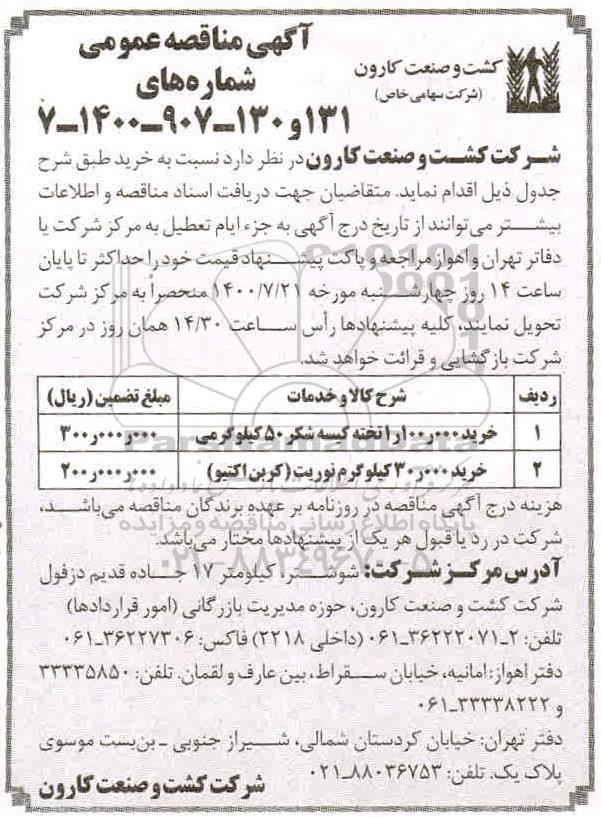 آگهی مناقصه عمومی
شماره‌های
۱۳۱و۱۳۰ـ۹۰۷ـ۱۴۰۰ـ۷
کشت و صنعت کارون
(شرکت سهامی خاص)
شرکت کشت و صنعت کارون در نظر دارد نسبت به خرید طبق شرح
جدول ذیل اقدام نماید. متقاضیان جهت دریافت اسناد مناقصه و اطلاعات
بیشتر می‌توانند از تاریخ درج آگهی به جزء ایام تعطیل به مرکز شرکت یا
دفاتر تهران و اهواز مراجعه و پاکت پیشنهاد قیمت خود را حداکثر تا پایان
ساعت ۱۴ روز چهارشنبه مورخه ۱۴۰۰/۷/۲۱ منحصراً به مرکز شرکت
تحویل نمایند، کلیه پیشنهادها رأس ساعت ۱۴/۳۰ همان روز در مرکز
شرکت بازگشایی و قرائت خواهد شد.
ردیف شرح کالا و خدمات مبلغ تضمین (ریال)
۱ خرید ۱٫۱۰۰٫۰۰۰ تخته کیسه شکر ۵۰ کیلوگرمی ۳۰۰٫۰۰۰٫۰۰۰
۲ خرید ۳۰٫۰۰۰ کیلوگرم نوریت (کربن اکتیو) ۲۰۰٫۰۰۰٫۰۰۰
هزینه درج آگهی مناقصه در روزنامه بر عهده برندگان مناقصه می‌باشد،
شرکت در رد یا قبول هر یک از پیشنهادها مختار می‌باشد.
آدرس مرکز شرکت: شوشتر، کیلومتر ۱۷ جاده قدیم دزفول
شرکت کشت و صنعت کارون، حوزه مدیریت بازرگانی (امور قراردادها)
تلفن: ۲ـ۳۶۲۲۲۰۷۱ـ۰۶۱ (داخلی ۲۲۱۸) فاکس: ۳۶۲۲۷۳۰۶ـ۰۶۱
دفتر اهواز: امانیه، خیابان سقراط، بین عارف و لقمان. تلفن: ۳۳۳۳۵۸۵۰
و ۳۳۳۳۸۲۲۲ـ۰۶۱
دفتر تهران: خیابان کردستان شمالی، شیراز جنوبی ـ بن‌بست موسوی
پلاک یک. تلفن: ۸۸۰۳۶۷۵۳ـ۰۲۱
شرکت کشت و صنعت کارون
ParsNamadData
پایگاه اطلاع رسانی مناقصه و مزایده
۰۲۱-۸۸۳۴۹۶۷۰-۵